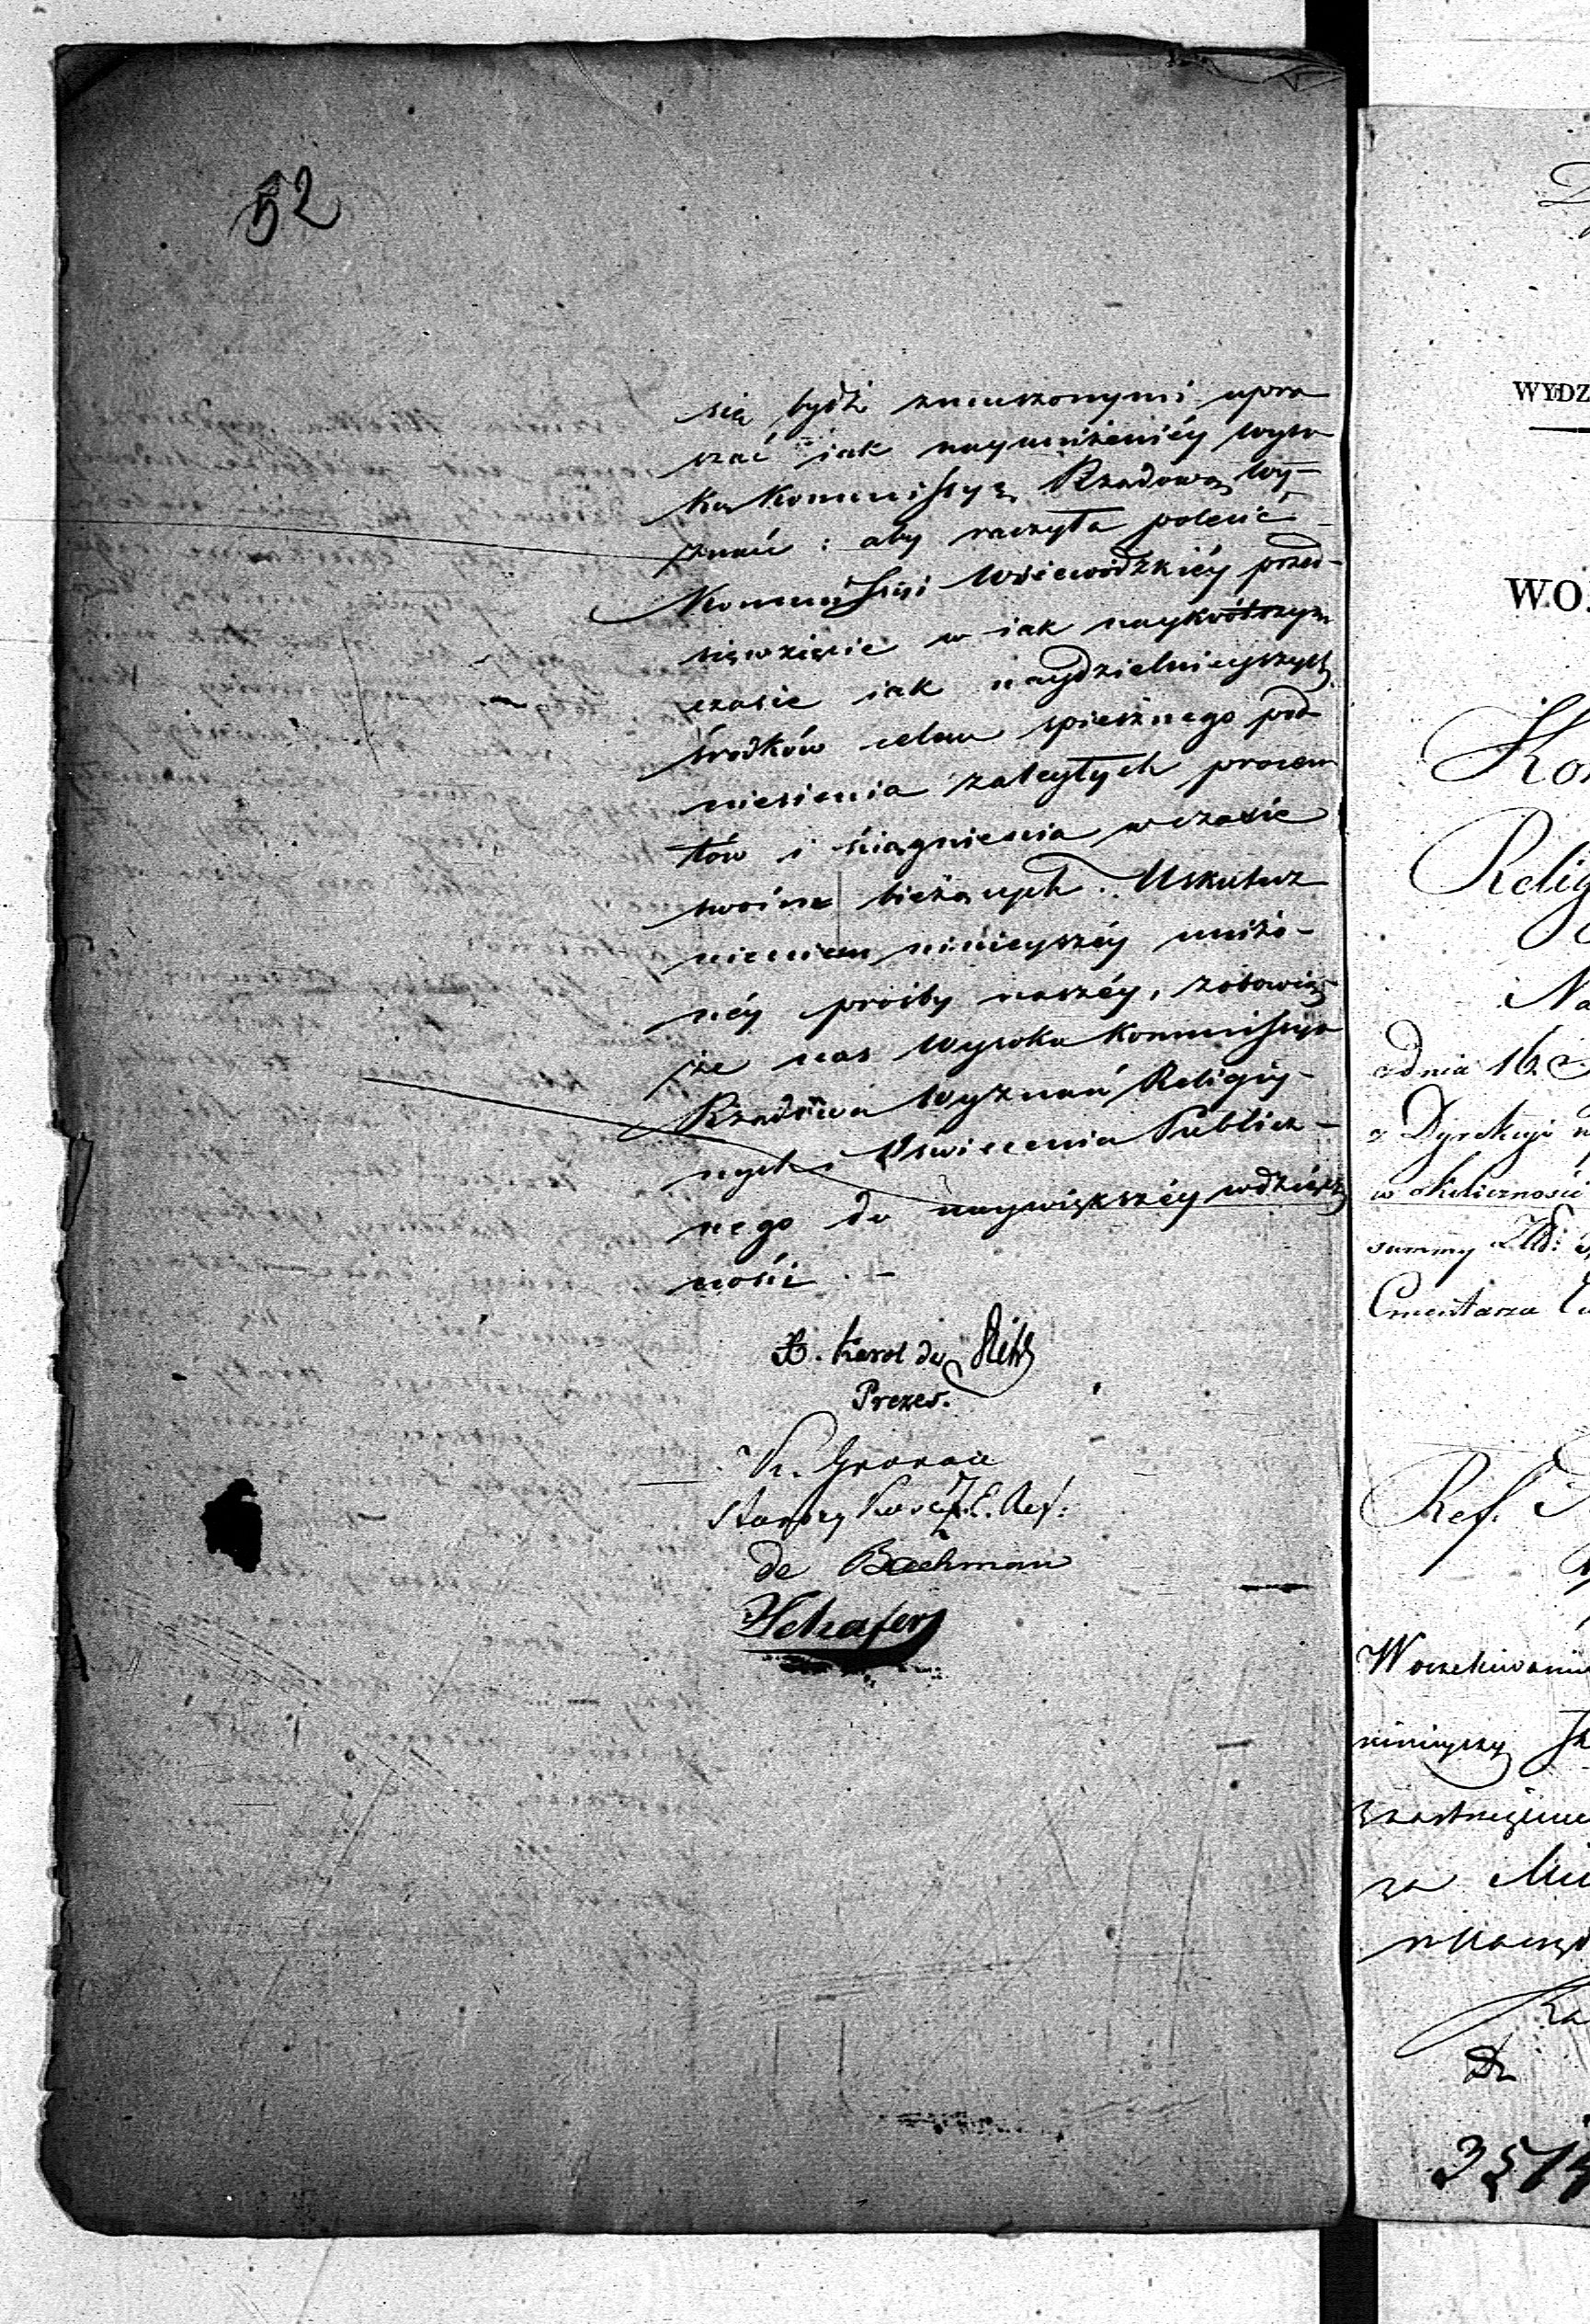 52
się bydź zmuszonymi upra
szać jak nayuniżeniéy Wyso
ką Kommissyą Rządową Wy-
znań: aby raczyła polecić
Kommissyi Woiewódzkiéy przed-
sięwzięcie w iak naykrótszym
czasie iak naydzielnieyszych
środków celem spiesznego pod
niesienia zaległych procen
tów i ściągnienia w czasie
swoim bieżących. Uskutecz
nieniem ninieyszéy uniżo-
néy prośby naszéy, zobowią
że nas Wysoka Kommissya
Rządowa Wyznań Religiy-
nych i Oświecenia Publicz-
nego do naywiększéy wdzięcz
ności. -
X. Karol de
Prezes.
Starszy Kość. E. Ref:
de Bachman
Schafer
WYDZ
WO
Kom
Relig
Na
dnia 16
z Dyrekcyi
w okoliczności
summy Złł:
Cmentarza
Ref.
W oczekiwaniu
ninieyszy
za
Ra
3514